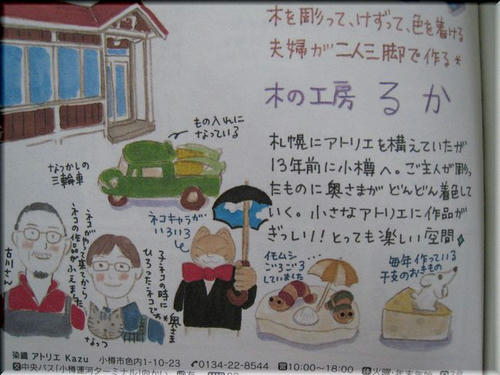 木を彫って、けずって、色を着ける
夫婦が二人三脚で作る*
木の工房 るか
札幌にアトリエを構えていたが
13年前に小樽へ。ご主人が彫っ
たものに奥さまがどんどん着色して
いく。小さなアトリエに作品が
ぎっしり!とっても楽しい空間
もの入れに
なっている
なつかしの
三輪車
ネコキャラが
いろいろ
古川さん
ネコがやって来てから
ネコの作品がふえました
なっつ
子ネコの時に
ひろったネコです
奥さま
イモムシ…
ごろごろ
していました
毎年作っている
干支のおきもの
染織 アトリエ Kazu 小樽市色内1-10-23 0134-22-8544 10:00〜18:00 火曜・年末年始
中央バス「小樽運河ターミナル」向かい